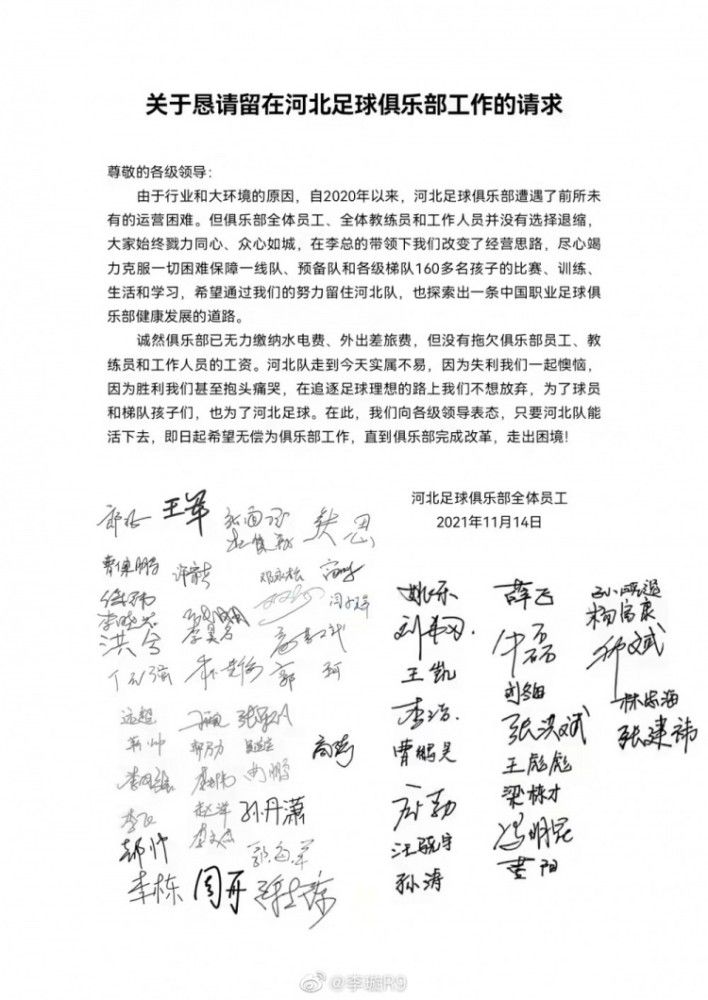 关于恳请留在河北足球俱乐部工作的请求
尊敬的各级领导：
由于行业和大环境的原因，自2020年以来，河北足球俱乐部遭遇了前所未
有的运营困难。但俱乐部全体员工、全体教练员和工作人员并没有选择退缩，
大家始终戮力同心、众心如城，在李总的带领下我们改变了经营思路，尽心竭
力克服一切困难保障一线队、预备队和各级梯队160多名孩子的比赛、训练、
生活和学习，希望通过我们的努力留住河北队，也探索出一条中国职业足球俱
乐部健康发展的道路。
诚然俱乐部已无力缴纳水电费、外出差旅费，但没有拖欠俱乐部员工、教
练员和工作人员的工资。河北队走到今天实属不易，因为失利我们一起懊恼，
因为胜利我们甚至抱头痛哭，在追逐足球理想的路上我们不想放弃，为了球员
和梯队孩子们，也为了河北足球。在此，我们向各级领导表态，只要河北队能
活下去，即日起希望无偿为俱乐部工作，直到俱乐部完成改革，走出困境！
河北足球俱乐部全体员工
2021年11月14日
王军
洪兮
郭珂
孙丹潇
李栋 周开
姚乐
王凯
李浩
曹鹏昊
汪晓宇
孙涛
薛飞
牛磊
张洪斌
王彪彪
梁栋才
冯明昆
董阳
杨富康
林志海
张建祎
@李璇R9